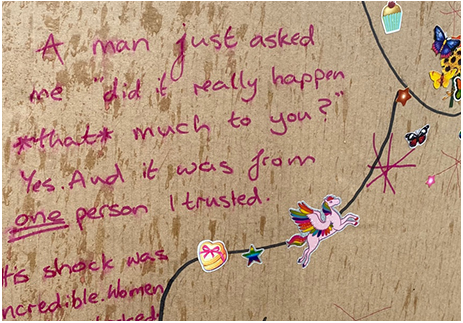 A man just asked
me "did it really happen
*that* much to you?"
Yes. And it was from
one person I trusted.
His shock was
incredible. Women